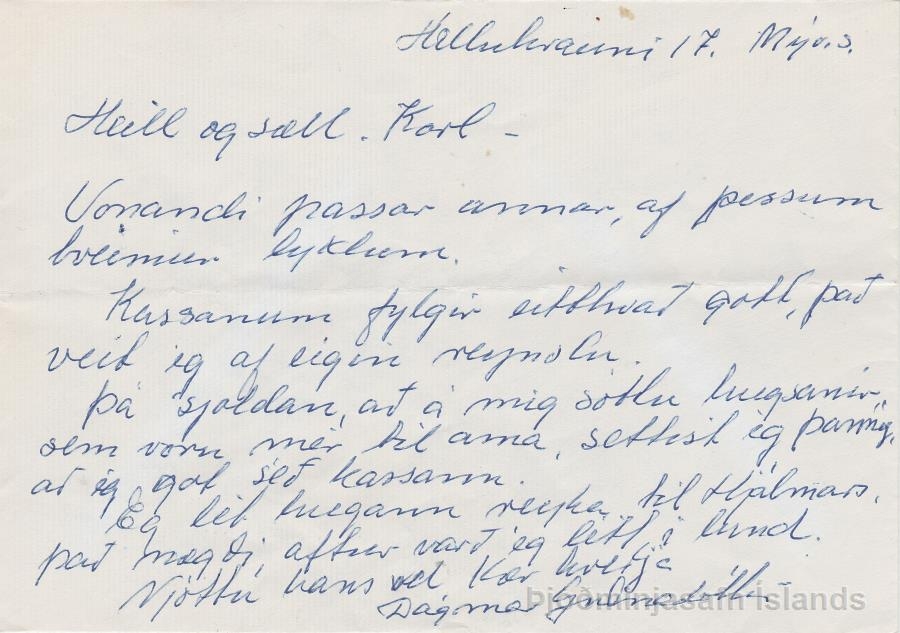 Helluhrauni 17. Mýv.s.
Heill og sæll. Karl -
Vonandi passar annar, af þessum
tveimur lyklum.
Kassanum fylgir eitthvað gott, það
veit ég af eigin reynslu.
Þá sjaldan, að á mig sóttu hugsanir,
sem voru mér til ama, settist ég þannig,
að ég gat séð kassann.
Ég lét hugann reika til Hjálmars.
það nægði, aftur varð ég létt í lund.
Njóttu hans vel Kær kveðja
Dagmar
Þjóðminjasafn Íslands